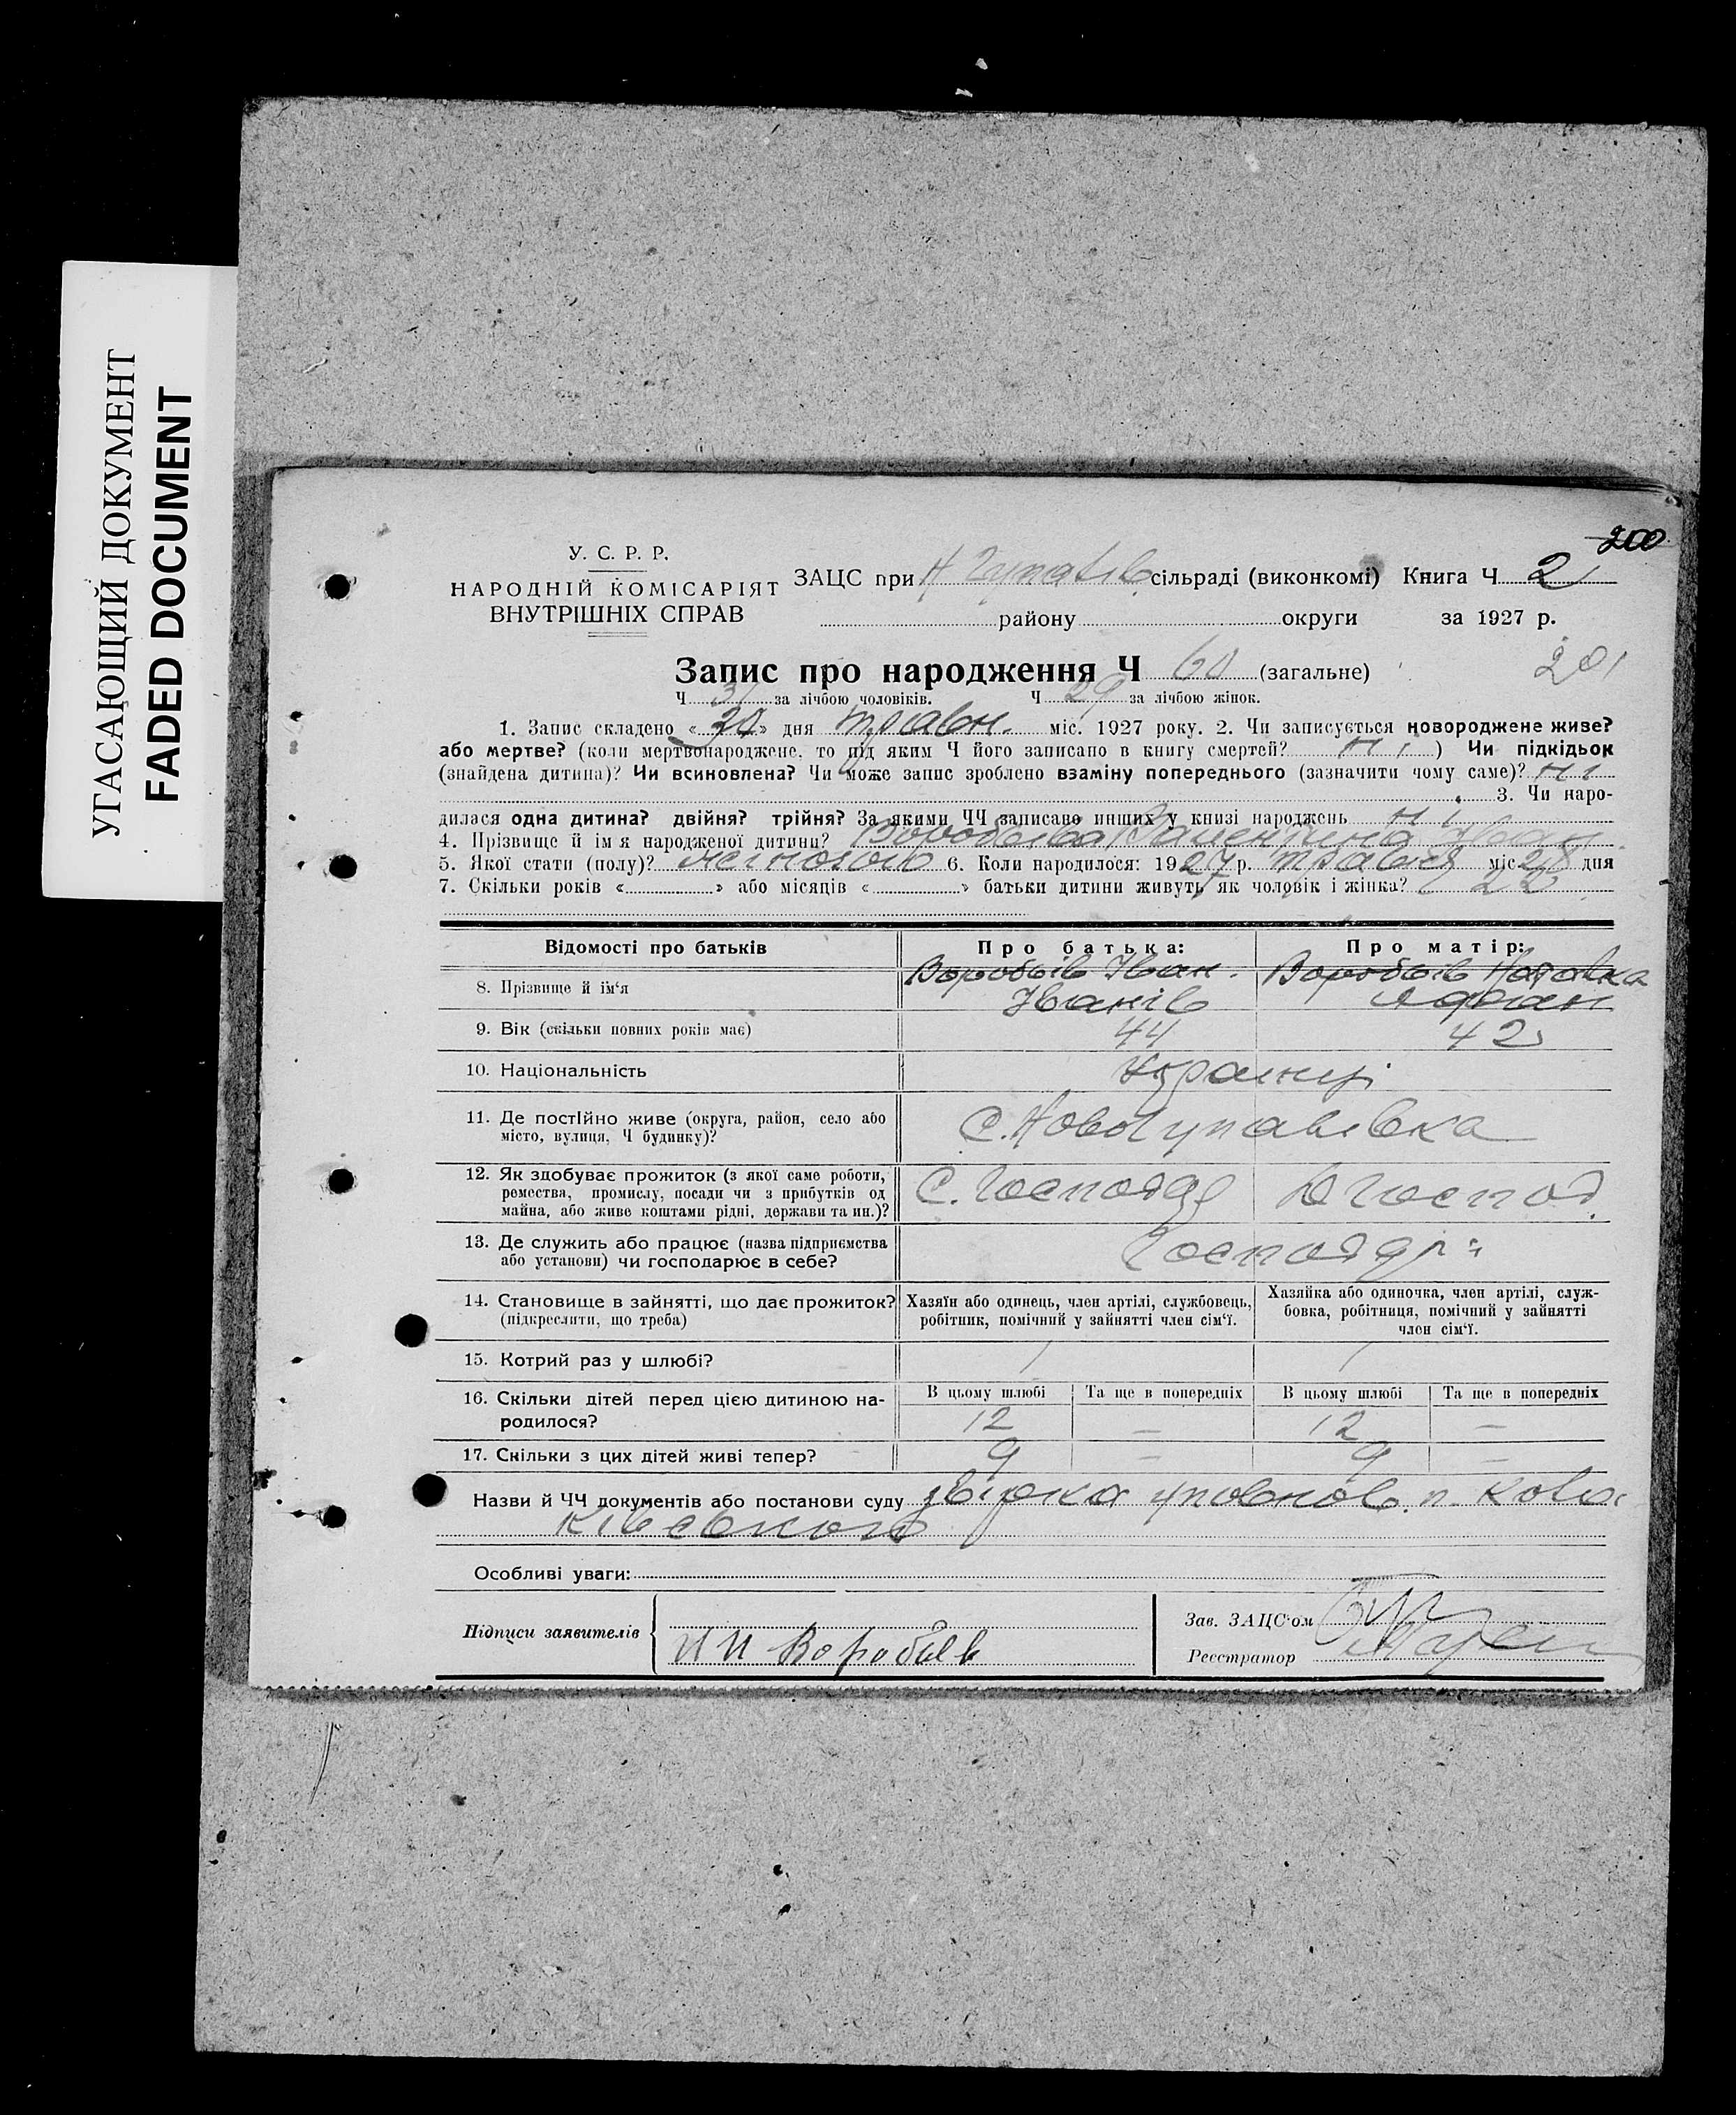 УГАСАЮЩИЙ ДОКУМЕНТ
FADED DOCUMENT
200
У. С. Р. Р.
НАРОДНІЙ КОМІСАРІЯТ
ВНУТРІШНІХ СПРАВ
ЗАЦС при сільраді (виконкомі) Книга Ч 2
району округи за 1927 р.
201
Запис про народження Ч 60 (загальне)
Ч 31 за лічбою чоловіків. Ч 29 за лічбою жінок.
1. Запис складено « » дня травн. міс. 1927 року. 2. Чи записується новороджене живе?
або мертве? (коли мертвонароджене, то під яким Ч його записано в книгу смертей? ні) Чи підкідьок
(знайдена дитина)? Чи всиновлена? Чи може запис зроблено взаміну попереднього (зазначити чому саме)? ні
3. Чи наро-
дилася одна дитина? двійня? трійня? За якими ЧЧ записано инших у книзі народжень ні
4. Прізвище й ім'я народженої дитини? Воробьева Валентина Иван
5. Якої стати (полу)? 6. Коли народилося: 1927 р. травня міс. 28 дня
7. Скільки років « » або місяців « » батьки дитини живуть як чоловік і жінка? 22
Відомості про батьків
Про батька:
Про матір:
8. Прізвище й ім'я
Воробьів Іван.
Іванів
Воробьів
9. Вік (скільки повних років має)
44
42
10. Національність
Українці
11. Де постійно живе (округа, район, село або
місто, вулиця, Ч будинку)?
С. Новогупалівка
12. Як здобуває прожиток (з якої саме роботи,
ремества, промислу, посади чи з прибутків од
майна, або живе коштами рідні, держави та ин.)?
С. Господар
Д Господ.
13. Де служить або працює (назва підприємства
або установи) чи господарює в себе?
Господарі
14. Становище в зайнятті, що дає прожиток?
(підкреслити, що треба)
Хазяїн або одинець, член артілі, службовець,
робітник, помічний у зайнятті член сім'ї.
Хазяйка або одиночка, член артілі, служ-
бовка, робітниця, помічний у зайнятті
член сім'ї.
15. Котрий раз у шлюбі?
1
1
16. Скільки дітей перед цією дитиною на-
родилося?
В цьому шлюбі
Та ще в попередніх
В цьому шлюбі
Та ще в попередніх
12
–
12
–
17. Скільки з цих дітей живі тепер?
9
–
9
–
Назви й ЧЧ документів або постанови суду
Особливі уваги:
Підписи заявителів
И И Воробьев
Зав. ЗАЦС'ом
Реєстратор